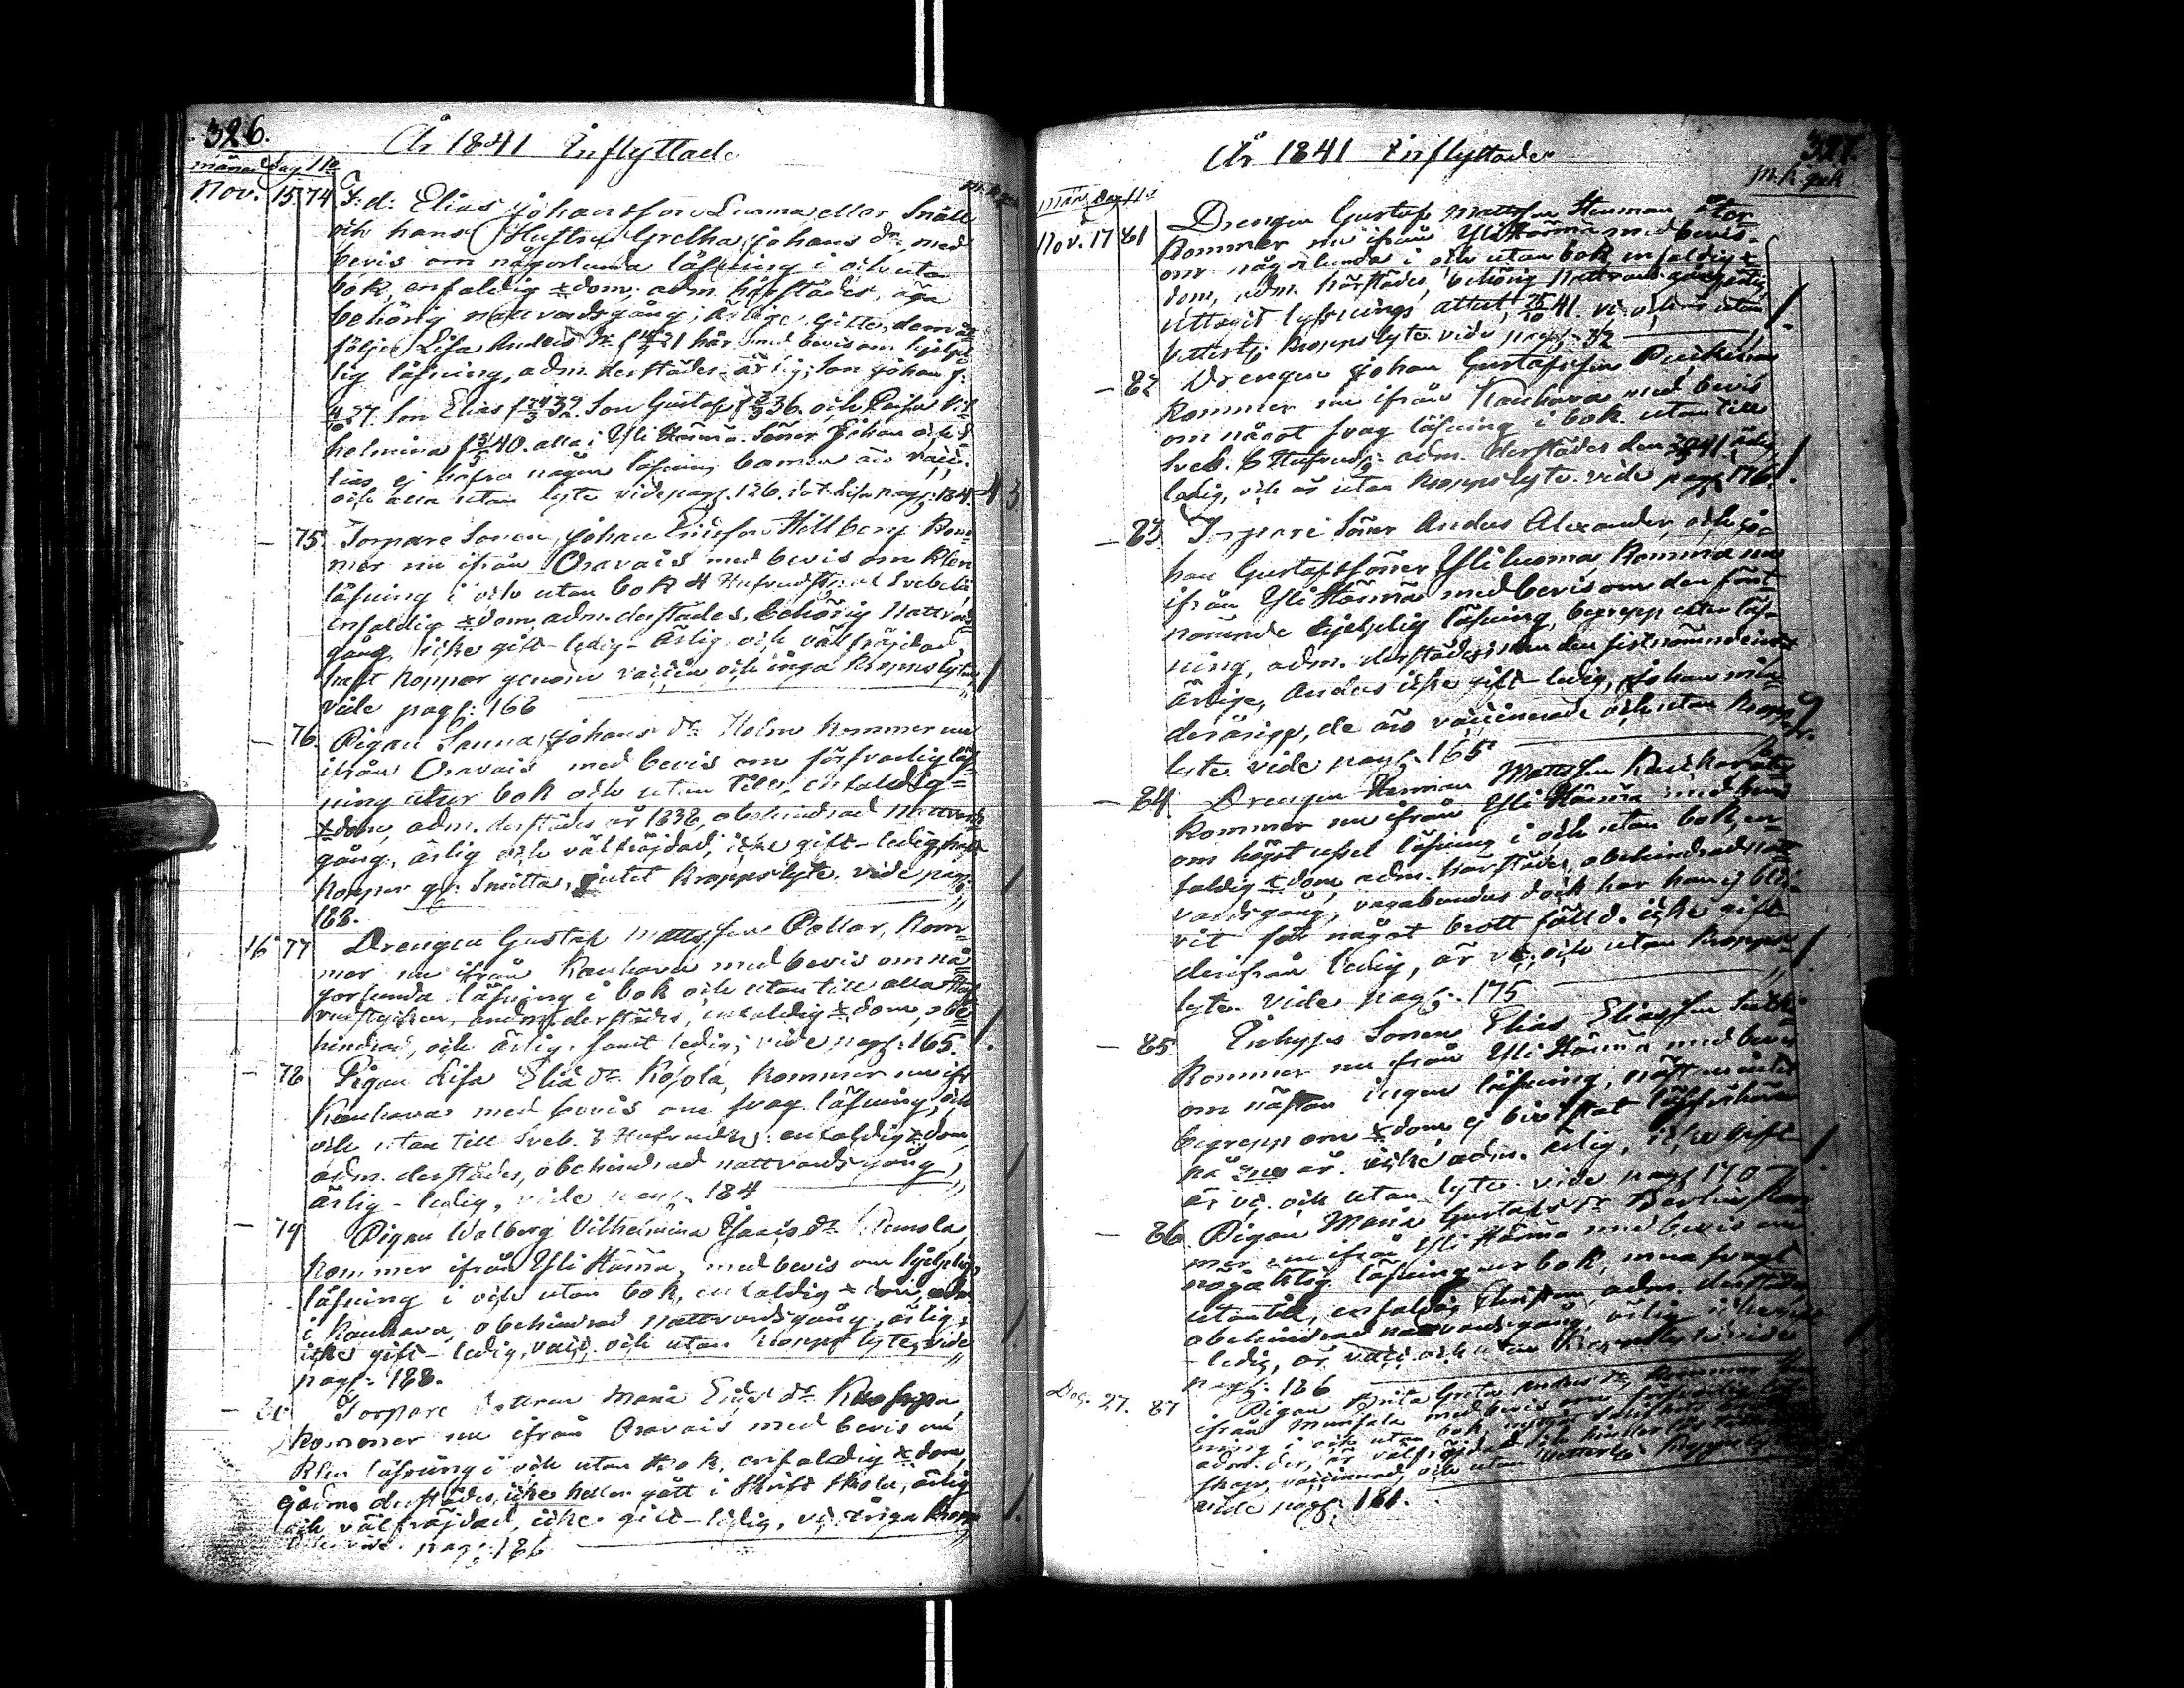 326.
År 1841 Inflyttade
månad dag No
Nov. 15. 74 F: d: Elias Johansson Luoma eller Snäll
och hans Hustru Gretha Johans dr, med
bevis om någorlunda läsning i och utan
bok, enfaldig xdom, adm. härstädes, äga
behörig nattvardsgång, ärlige, gifte, dem
följer Lisa Anders dr f 21 här med bevis om hjelp-
lig läsning, adm. derstädes ärlig; Son Johan f.
27. Son Elias f 32. Son Gustaf f 36. och Caisa Vil-
helmina f 40. alla i Yli Härmä. Söner Johan och E-
lias ej hafva någon läsning barnen äro vacc.
och alla utan lyte vide pag: 126. Lisa pag: 184. 4 3
75. Torpare Sonen, Johan Ericsson Hellberg Kom-
mer nu ifrån Oravais med bevis om klen
läsning i och utan bok 4 Hufvudst: Svebelii
enfaldig xdom, adm. derstädes, behörig Nattvards
gång, icke gift - ledig - ärlig och välfräjdad
haft koppor genom vaccin och inga kroppslyten,
vide pag: 166
76. Pigan Sanna Johans dr Holm kommer nu
ifrån Oravais med bevis om försvarlig läs-
ning utur bok och utan till, enfaldig
xdom, adm. derstädes år 1838, obehindrad Nattvards
gång, ärlig och välfräjdad, icke gift - ledig, haft
koppor g: Smitta, intet kroppslyte. vide pag:
188.
16 77 Drengen Gustaf Mattsson Pollar, Kom-
mer nu ifrån Kauhava med bevis om nå-
gorlunda läsning i bok och utan till alla Huf
vudstycken, adm. derstädes, enfaldig xdom, obe
hindrad, och ärlig, samt ledig, vide pag: 165.
78 Pigan Lisa Eliæ dr Kojola, kommer nu ifr
Kauhava med bevis om svag läsning, i
och utan till Sveb. 3 Hufvuds: enfaldig xdom,
adm. derstädes, obehindrad nattvardsgång,
ärlig - ledig, vide pag: 184
79 Pigan Walborg Vilhelmina Isacs dr
Kommer ifrån Yli Härmä, med bevis om hjelplig
läsning i och utan bok, enfaldig xdom, adm
i Kauhava, obehindrad nattvardsgång, ärlig,
icke gift - ledig, vacc. och utan kropps lyte, vide
pag: 188.
Torpare Dottren Maria Erics dr
Kommer nu ifrån Oravais med bevis om
klen läsning i och utan bok, enfaldig xdom,
ej adm. derstädes, icke heller gått i Skrift skola, ärlig
och välfräjdad, icke gift - ledig, vc. inga kropps
lyten vide pag: 186
327.
År 1841 Inflyttade
mån dag No
M.k. qvk
Nov. 17 81 Drengen Gustaf Mattsson Stenman åter
kommer nu ifrån Yli Härmä med bevis
om någorlunda i och utan bok, enfaldig x
dom, adm. härstädes, behörig Nattvards gång, ledig,
uttagit lysnings attest 25/10 41. vc. och är utan
vitterlig kroppslyte vide pag: 32
82 Drengen Johan Gustafsson
Kommer nu ifrån Kauhava med bevis
om något svag läsning i bok utan till
Sveb. 3 Hufvuds: adm. derstädes den 41, ärlig
ledig, och är utan kroppslyte. vide pag: 176
83 Torpare Söner Anders Alexander, och Jo-
han Gustafssöner Yliluoma Komma nu
ifrån Yli Härmä med bevis om den först
nämnde hjelplig läsning, begrepp efter läs-
ning, adm. derstädes, men den sistnämnde icke
ärlige, Anders icke gift - ledig, Johan min-
derårig, de äro vaccinerade och utan kropps
lyte. vide pag: 165
84 Drengen Herman Mattsson
Kommer nu ifrån Yli Härmä med bevis
om högst ussel läsning i och utan bok, en-
faldig xdom, adm. härstädes, obehindrad natt-
vardsgång, vagabundus dock har han ej bli-
vit för något brott fälld. icke gift
derifrån ledig, är vc. och utan kropps
lyte. vide pag: 175
85. Inhyses Sonen Elias Eliasson
Kommer nu ifrån Yli Härmä med bevis
om nästan ingen läsning, nästan intet
begrepp om xdom ej bivistat läsförhören
på år. icke adm. ärlig, icke gift
är vc. och utan lyte. vide pag 170
86 Pigan Maria Gustafs dr Kom-
mer nu ifrån Yli Härmä med bevis om
någotlig läsning ur bok, men svagt
utantill, enfaldig Christen, adm. derstädes
obehindrad nattvardsgång, ärlig icke gift
- ledig, är vacc. och utan kroppslyte vide
pag: 186
Dec. 27. 87 Pigan Brita Greta Anders dr, kommer
ifrån Munsala med bevis om försvarlig
ning i och utan bok,
adm. der, är välfräjdad och hinderslös till
skap, vaccinerad, och utan vitterlig kroppslyte
vide pag: 181.